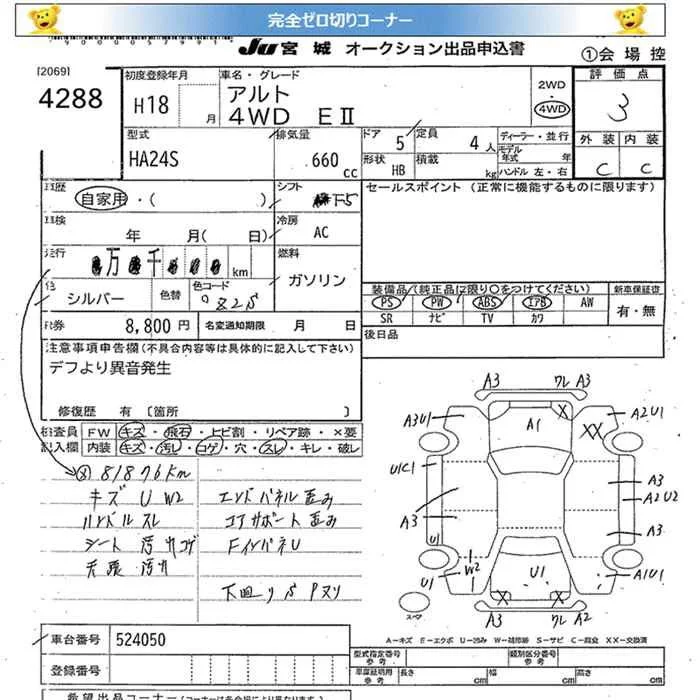 完全ゼロ切りコーナー
JU 宮城 オークション出品申込書
①会場控
[2069]
4288
初度登録年月
H18 月
車名・グレード
アルト
4WD EⅡ
2WD
・
4WD
評価点
3
型式
HA24S
排気量
660 cc
ドア 5
定員 4人
形状 HB
積載 kg
ディーラー・並行
モデル年式 年
ハンドル 左・右
外装 内装
C C
車歴 自家用・( )
シフト
F5
セールスポイント (正常に機能するものに限ります)
車検 年 月( 日)
冷房 AC
走行 万 千 km
燃料 ガソリン
色 シルバー
色替
色コード
装備品(純正品に限り○をつけてください)
新車保証書
PS PW ABS エアB AW
SR ナビ TV カワ
有・無
R券 8,800円
名変通知期限 月 日
後日品
注意事項申告欄(不具合内容等は具体的に記入して下さい)
デフより異音発生
修復歴 有〔箇所 〕
検査員 FW キズ・飛石・トビ割・リペア跡・×要
記入欄 内装 キズ・汚レ・コゲ・穴・スレ・キレ・破レ
81876km
キズ U W2
ハンドルスレ
シート 汚れコゲ
天張 汚れ
エンドパネル歪み
コアサポート歪み
FインパネU
下回りS Pヌリ
A3 クレ A3
A3U1 A1 X A2U1
XX
U1C1 A3
A2U2
A3 A3
U1
U1 W2 U1 A1U1
X X
スペア A3 クレ A2
A-キズ E-エクボ U-凹み W-補修跡 S-サビ C-腐食 XX-交換済
車台番号 524050
登録番号
型式指定番号
参考
類別区分番号
参考
車庫証明用
参考
長さ cm 幅 cm 高さ cm
希望出品コーナー